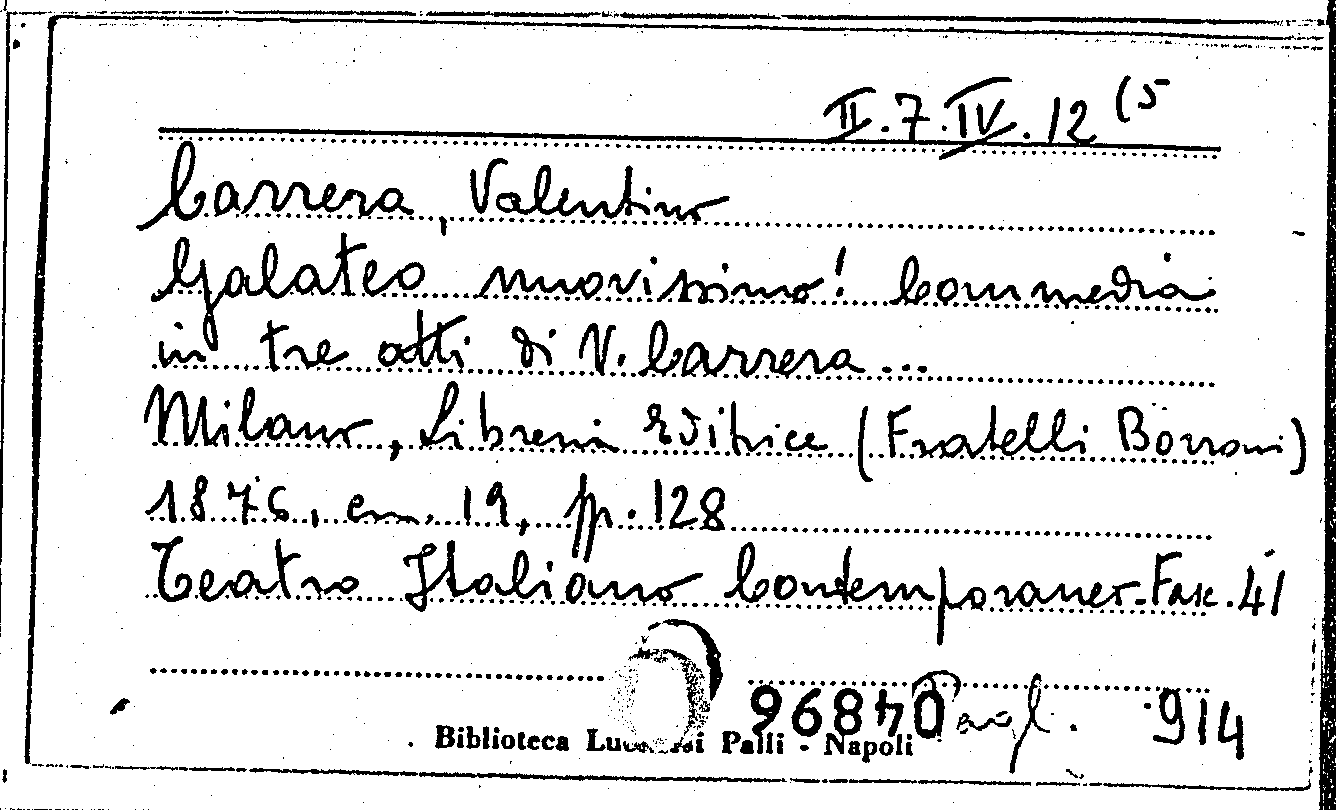 II.7.IV.12 (5
Carrera, Valentino
Galateo nuovissimo! Commedia
in tre atti di V. Carrera...
Milano, Libreria Editrice (Fratelli Borroni)
1876, cm. 19, pp. 128
Teatro Italiano Contemporaneo-Fasc. 41
048896 Pagl. 914
Biblioteca Lucchesi Palli - Napoli